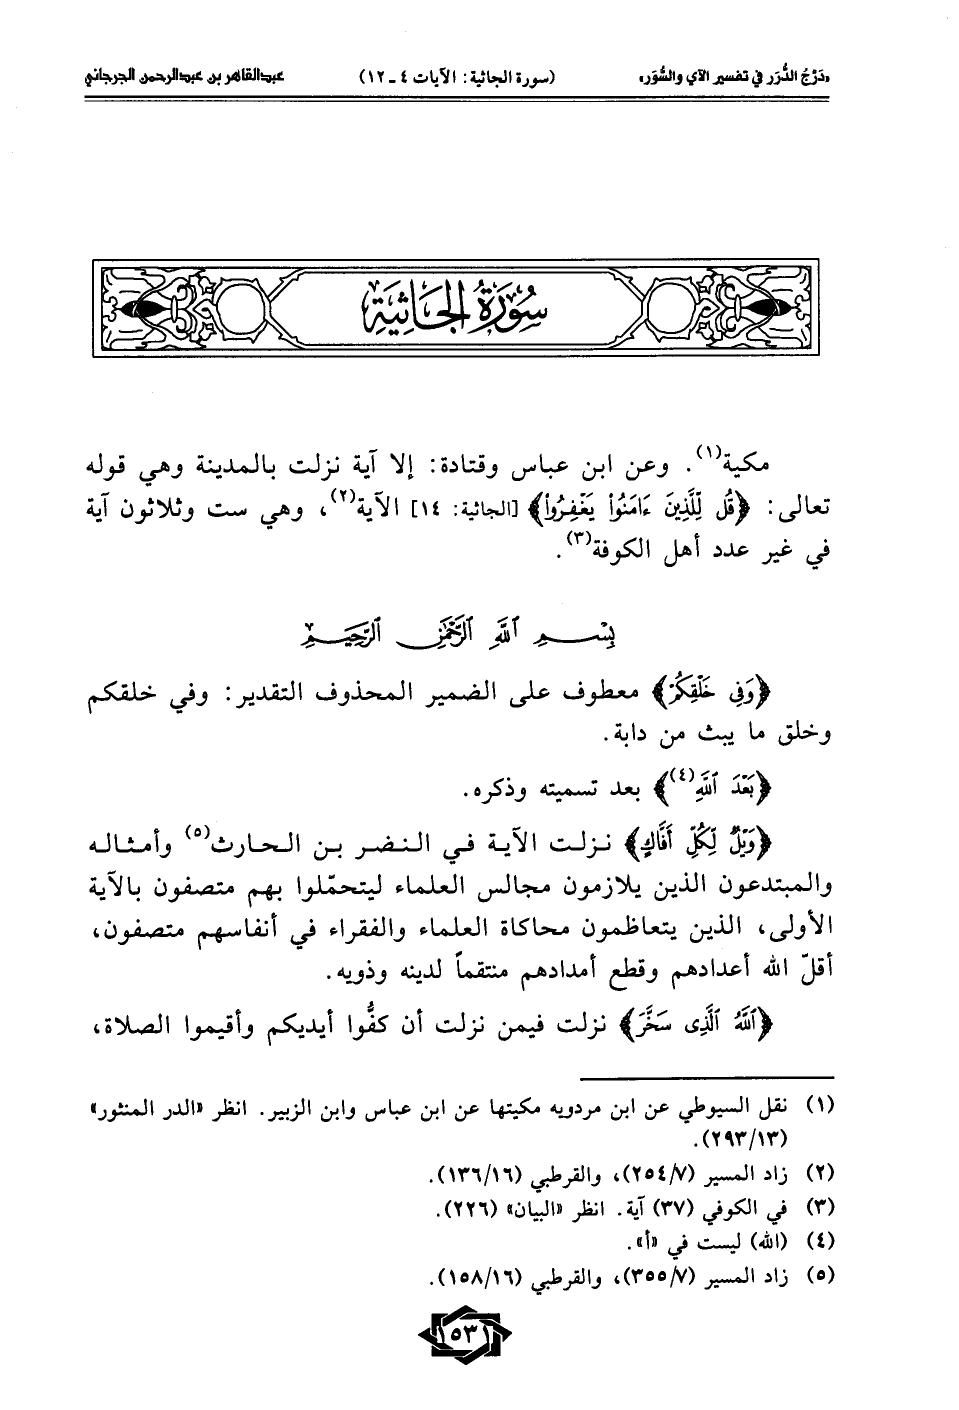 «دَرْجُ الدُّرَر في تفسير الآي والسُّوَر» (سورة الجاثية: الآيات ٤ ـ ١٢) عبدالقاهر بن عبدالرحمن الجرجاني
سُورَةُ الجَاثِيَةِ
مكية(١). وعن ابن عباس وقتادة: إلا آية نزلت بالمدينة وهي قوله
تعالى: ﴿قُل لِّلَّذِينَ ءَامَنُواْ يَغْفِرُواْ﴾ [الجاثية: ١٤] الآية(٢)، وهي ست وثلاثون آية
في غير عدد أهل الكوفة(٣).
بِسْمِ ٱللَّهِ ٱلرَّحْمَٰنِ ٱلرَّحِيمِ
﴿وَفِى خَلْقِكُمْ﴾ معطوف على الضمير المحذوف التقدير: وفي خلقكم
وخلق ما يبث من دابة.
﴿بَعْدَ ٱللَّهِ(٤)﴾ بعد تسميته وذكره.
﴿وَيْلٌ لِّكُلِّ أَفَّاكٍ﴾ نزلت الآية في النضر بن الحارث(٥) وأمثاله
والمبتدعون الذين يلازمون مجالس العلماء ليتحمّلوا بهم متصفون بالآية
الأولى، الذين يتعاظمون محاكاة العلماء والفقراء في أنفاسهم متصفون،
أقلّ الله أعدادهم وقطع أمدادهم منتقماً لدينه وذويه.
﴿ٱللَّهُ ٱلَّذِى سَخَّرَ﴾ نزلت فيمن نزلت أن كفُّوا أيديكم وأقيموا الصلاة،
(١) نقل السيوطي عن ابن مردويه مكيتها عن ابن عباس وابن الزبير. انظر «الدر المنثور»
(٢٩٣/١٣).
(٢) زاد المسير (٢٥٤/٧)، والقرطبي (١٣٦/١٦).
(٣) في الكوفي (٣٧) آية. انظر «البيان» (٢٢٦).
(٤) (الله) ليست في «أ».
(٥) زاد المسير (٣٥٥/٧)، والقرطبي (١٥٨/١٦).
١٥٣١